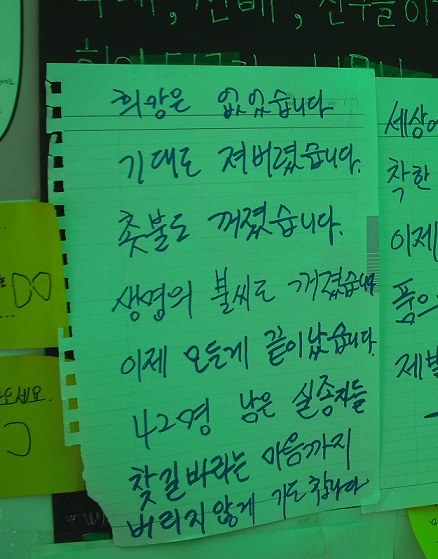 선배, 친구들이
희망은 없었습니다.
기대도 져버렸습니다.
촛불도 꺼졌습니다.
생명의 불씨도 꺼졌습니다
이제 모든게 끝이났습니다.
42명 남은 실종자들
찾길바라는 마음까지
버리지않게 기도합니다
착한
이제